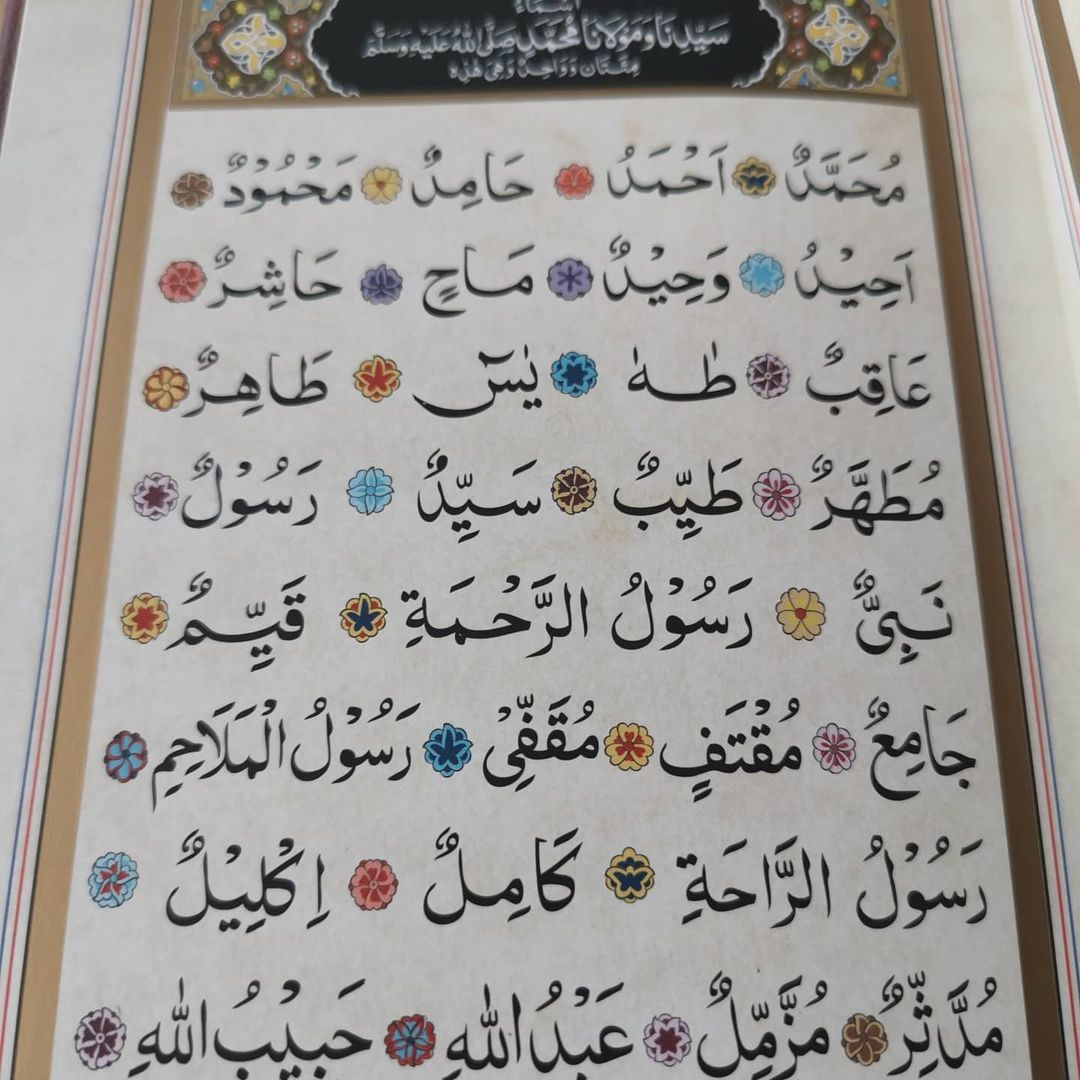 اَسْمَاءُ
سَيِّدِنَا وَمَوْلَانَا مُحَمَّدٍ صَلَّى اللهُ عَلَيْهِ وَسَلَّمَ
مِئَتَانِ وَوَاحِدٌ وَهِيَ هٰذِهِ
مُحَمَّدٌ اَحْمَدُ حَامِدٌ مَحْمُوْدٌ
اَحِيْدُ وَحِيْدٌ مَاحٍ حَاشِرٌ
عَاقِبٌ طٰهٰ يٰسٓ طَاهِرٌ
مُطَهَّرٌ طَيِّبٌ سَيِّدٌ رَسُوْلٌ
نَبِىٌّ رَسُوْلُ الرَّحْمَةِ قَيِّمٌ
جَامِعٌ مُقْتَفٍ مُقَفِّىْ رَسُوْلُ الْمَلَاحِمِ
رَسُوْلُ الرَّاحَةِ كَامِلٌ اِكْلِيْلٌ
مُدَّثِّرٌ مُزَّمِّلٌ عَبْدُ اللّٰهِ حَبِيْبُ اللّٰهِ